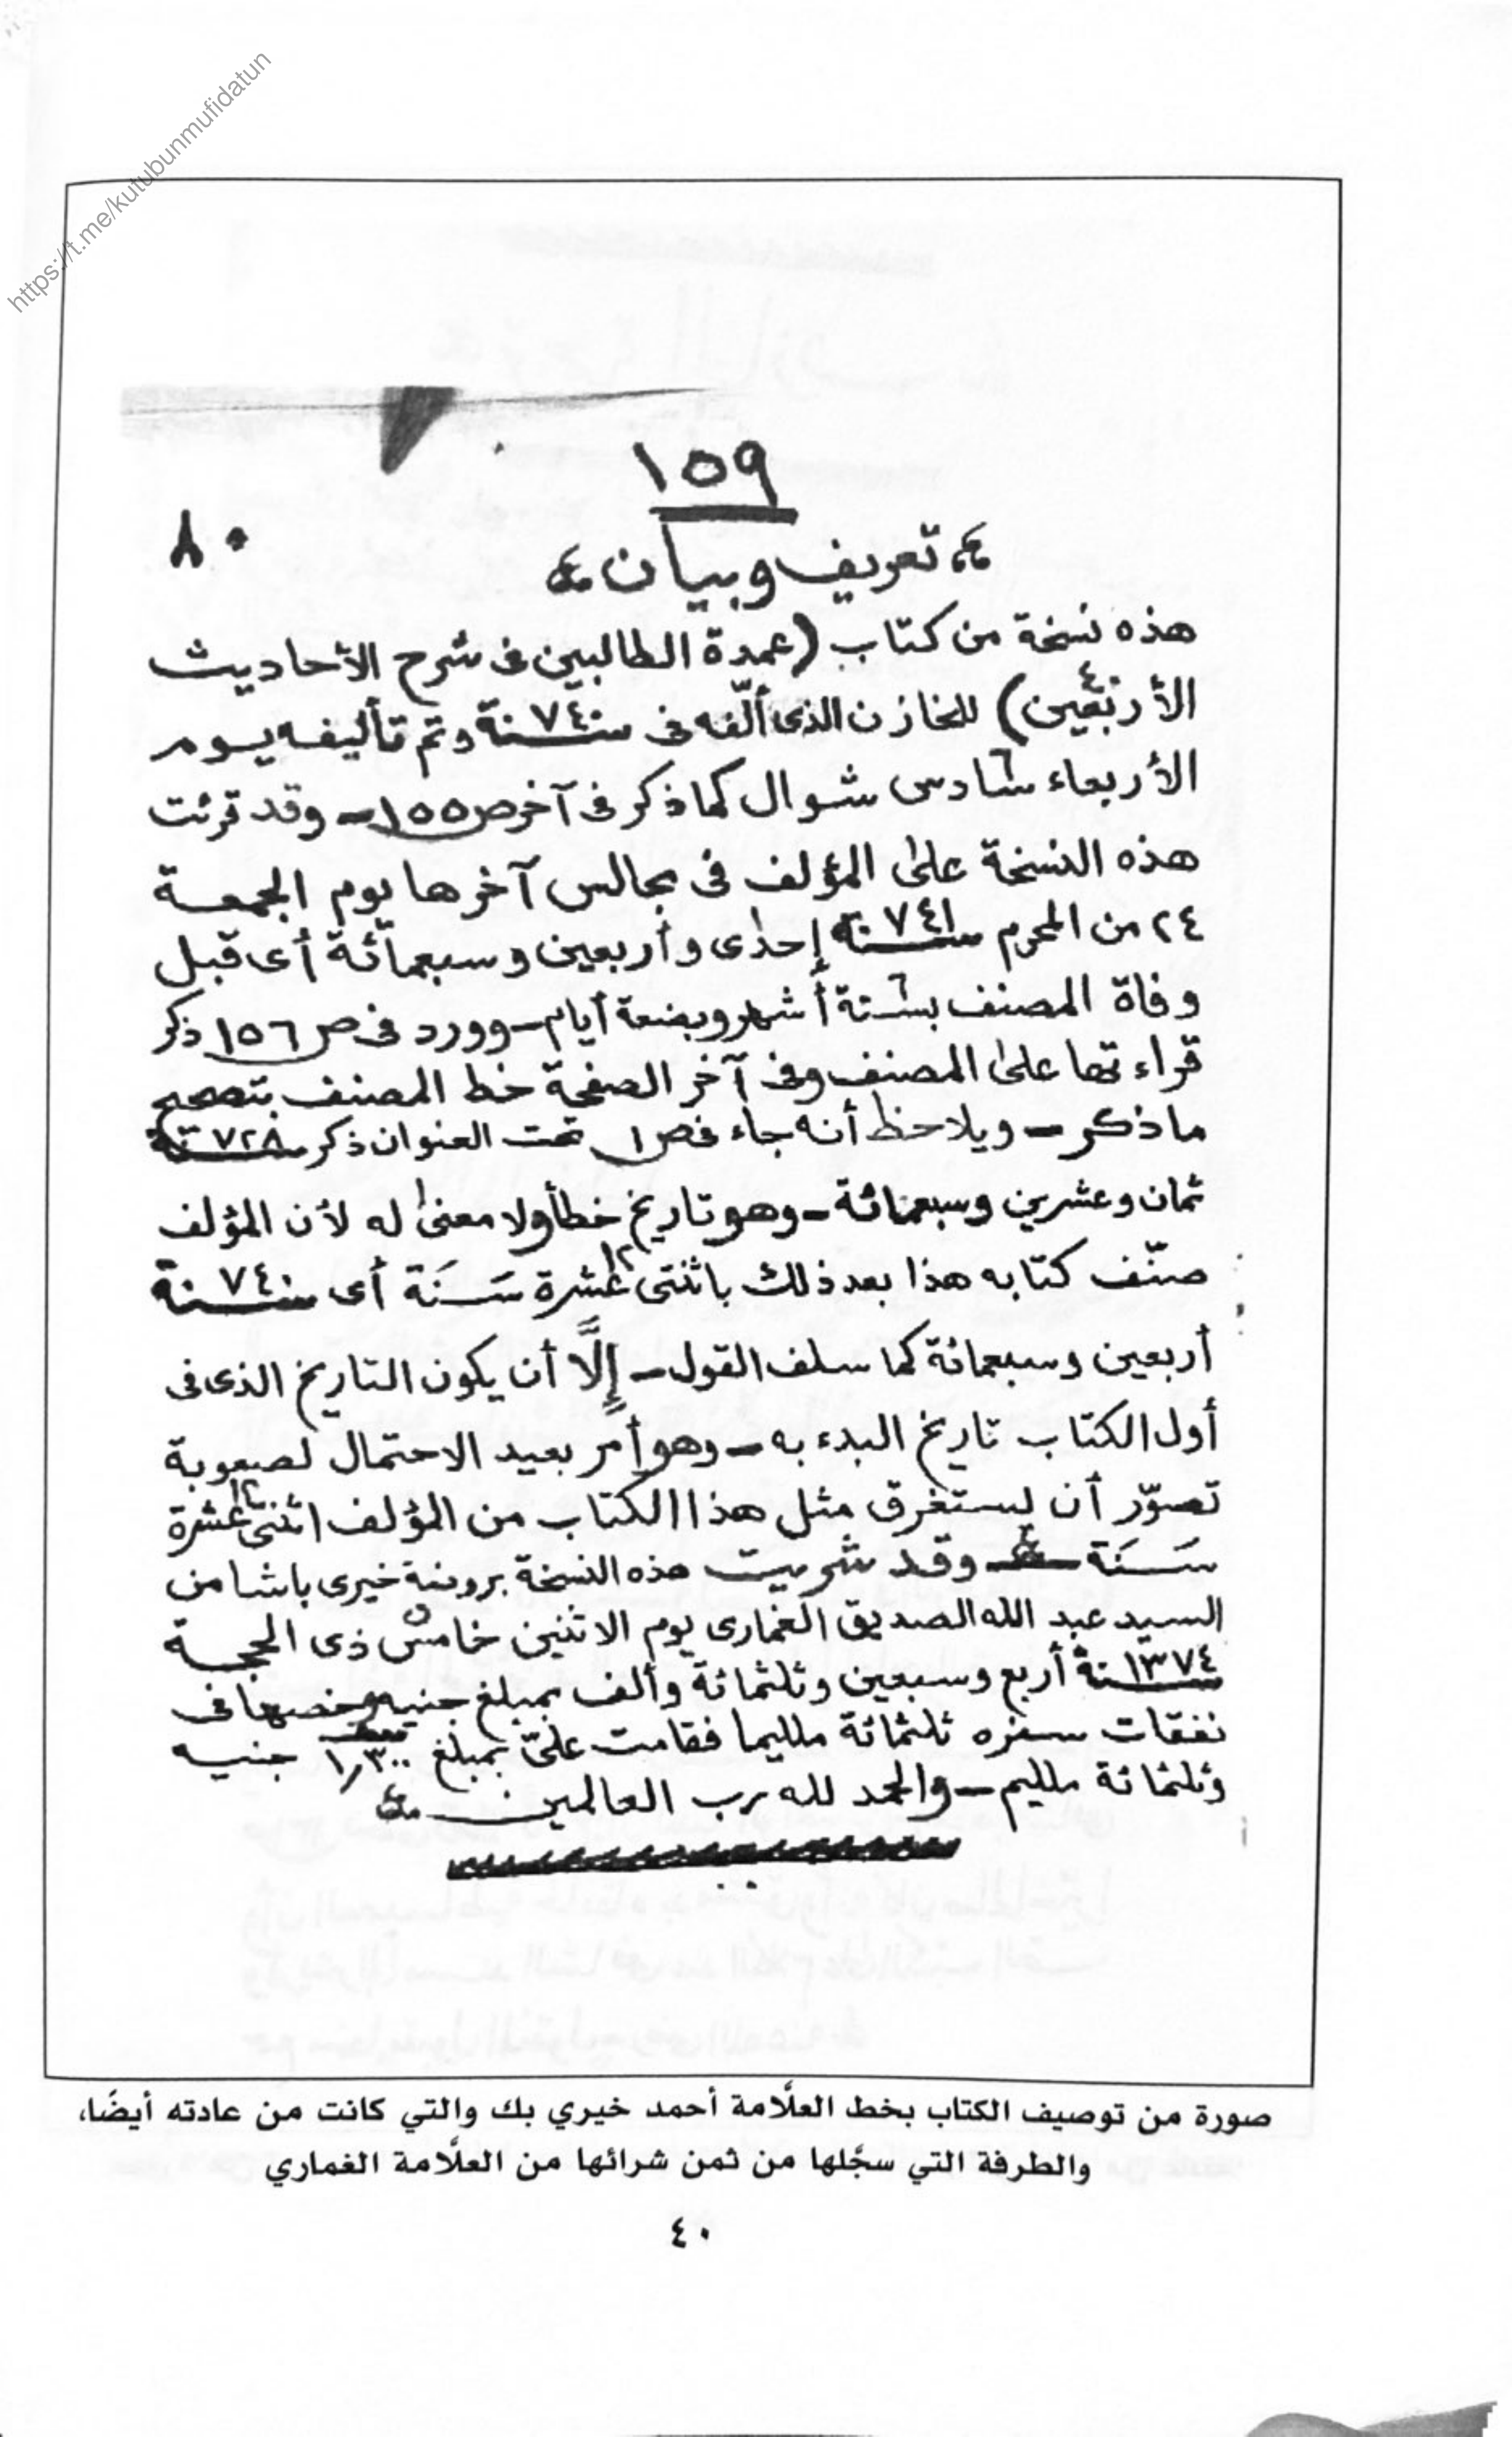 https://t.me/kutubunmufidatun
١٥٩
٨٠
تعريف وبيان
هذه نسخة من كتاب (عمدة الطالبين فى شرح الأحاديث
الأربعين) ٤٠ للخازن الذى ألّفه فى سنة ٧٤٠ وتم تأليفه يوم
الأربعاء سادس ٦ شوال كما ذكر فى آخر ص ١٥٥ - وقد قرئت
هذه النسخة على المؤلف فى مجالس آخرها يوم الجمعة
٢٤ من المحرم سنة ٧٤١ إحدى وأربعين وسبعمائة أى قبل
وفاة المصنف بستة ٦ أشهر وبضعة أيام - وورد فى ص ١٥٦ ذكر
قراءتها على المصنف وفى آخر الصفحة خط المصنف بتصحيح
ما ذكر - ويلاحظ أنه جاء فى ص ١ تحت العنوان ذكر سنة ٧٢٨
ثمان وعشرين وسبعمائة - وهو تاريخ خطأ ولا معنى له لأن المؤلف
صنّف كتابه هذا بعد ذلك باثنتى عشرة ١٢ سَنَة أى سنة ٧٤٠
أربعين وسبعمائة كما سلف القول - إلَّا أن يكون التاريخ الذى فى
أول الكتاب تاريخ البدء به - وهو أمر بعيد الاحتمال لصعوبة
تصوّر أن يستغرق مثل هذا الكتاب من المؤلف اثنتى عشرة ١٢
سَنَة - وقد شريت هذه النسخة بروضة خيرى باشا من
السيد عبد الله الصديق الغمارى يوم الاثنين خامس ٥ ذى الحجة
سنة ١٣٧٤ أربع وسبعين وثلثمائة وألف بمبلغ جنيه وخصها فى
نفقات سفره ثلثمائة مليما فقامت علىّ بمبلغ ١٫٣٠٠ جنيه
وثلثمائة مليم - والحمد لله رب العالمين
صورة من توصيف الكتاب بخط العلَّامة أحمد خيري بك والتي كانت من عادته أيضًا،
والطرفة التي سجَّلها من ثمن شرائها من العلَّامة الغماري
٤٠